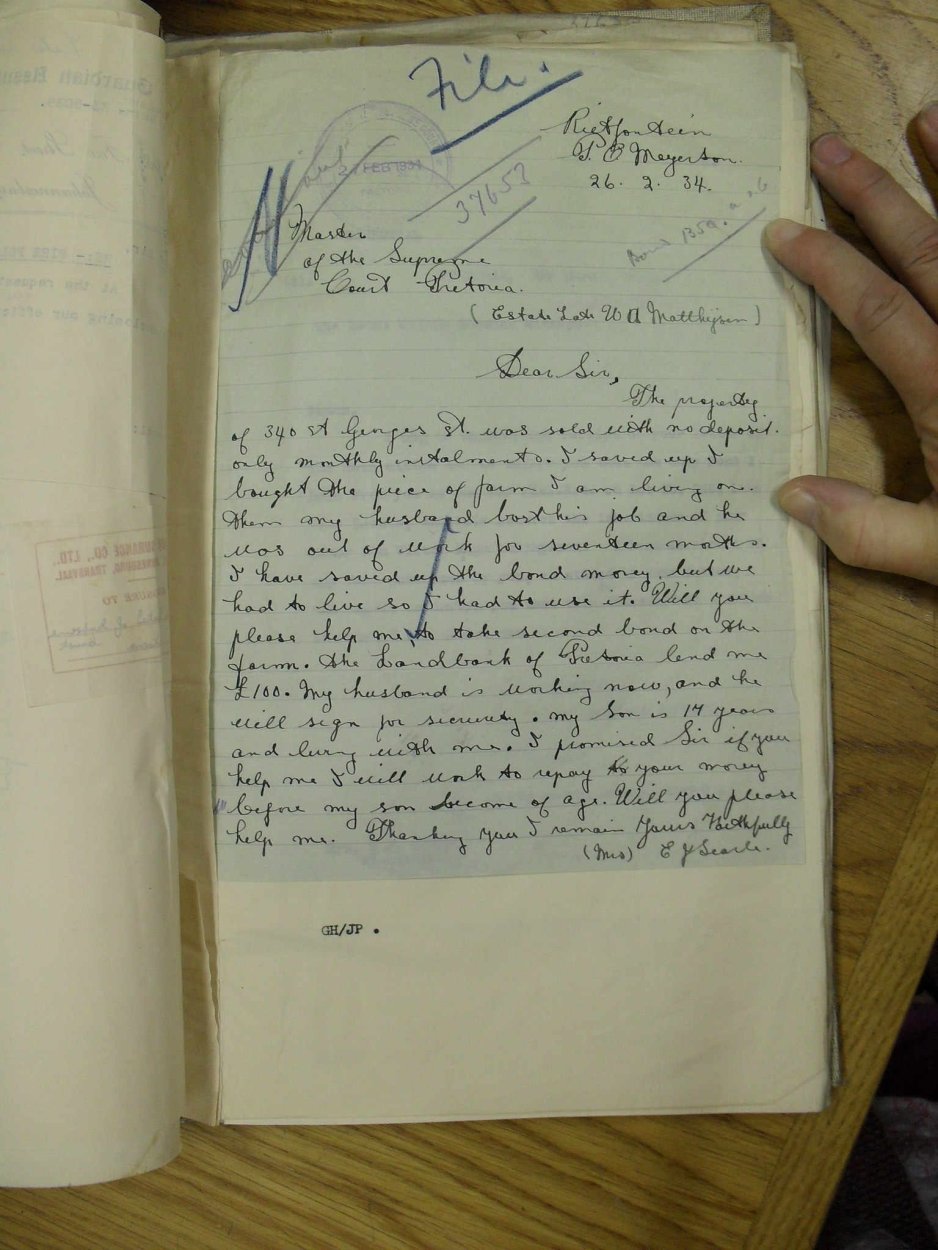 File.
Rietfontein
P. O Meyerson.
26. 2. 34.
2 FEB 1934
37653
Bond 1359.
Master
of the Supreme
Court Pretoria.
(Estate Late W A Matthysen)
Dear Sir,
The property
of 340 St Georges St. was sold with no deposit.
only monthly instalments. I saved up I
bought the piece of farm I am living one.
them my husband lost his job and he
was out of work for seventeen months.
I have saved up the bond money, but we
had to live so I had to use it. Will you
please help me to take second bond on the
farm. the Landbank of Pretoria lend me
£100. My husband is working now, and he
will sign for security. my son is 17 years
and living with me. I promised Sir if you
help me I will work to repay to your money
before my son become of age. Will you please
help me. Thanking you I remain Yours Faithfully
(Mrs) E J Searle.
GH/JP.
Guardian
SURANCE CO., LTD.
TRANSVAAL